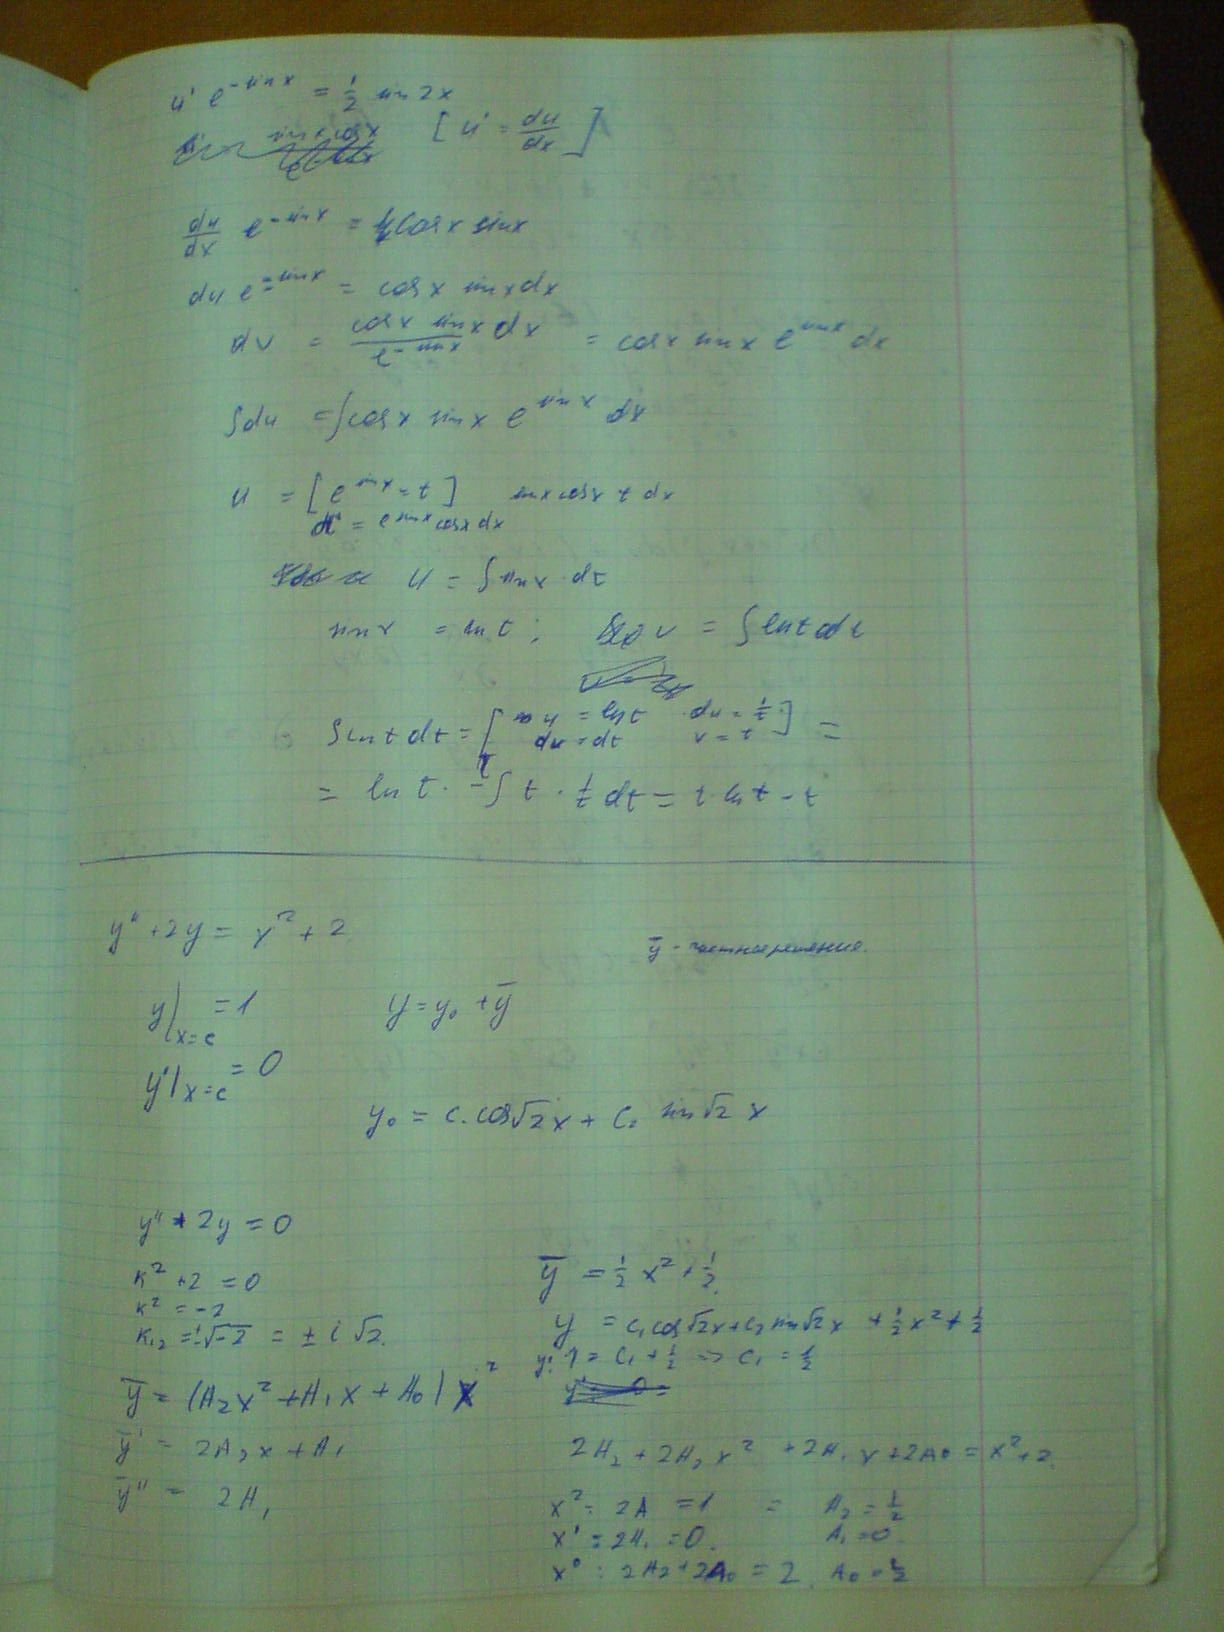 u' e^{-sin x} = 1/2 sin 2x
sin x cos x [u' = du/dx]
du/dx e^{-sin x} = cos x sin x
du e^{-sin x} = cos x sin x dx
du = cos x sin x dx / e^{-sin x} = cos x sin x e^{sin x} dx
∫du = ∫cos x sin x e^{sin x} dx
u = [e^{sin x} = t] sin x cos x t dx
dt = e^{sin x} cos x dx
u = ∫sin x · dt
sin x = ln t; u = ∫ln t dt
∫ln t dt = [u = ln t du = 1/t
dv = dt v = t] =
= ln t · t - ∫ t · 1/t dt = t · ln t - t
y'' + 2y = x² + 2
ȳ - частное решение.
y|_{x=c} = 1 y = y₀ + ȳ
y'|_{x=c} = 0
y₀ = C₁ cos √2 x + C₂ sin √2 x
y'' + 2y = 0
k² + 2 = 0
k² = -2
k₁₂ = ±√-2 = ± i √2.
ȳ = (A₂x² + A₁x + A₀)
ȳ' = 2A₂x + A₁
ȳ'' = 2A₁
ȳ = 1/2 x² + 1/2.
y = C₁ cos √2x + C₂ sin √2x + 1/2 x² + 1/2
y: 1 = C₁ + 1/2 => C₁ = 1/2
y' 0 =
2A₂ + 2A₂x² + 2A₁x + 2A₀ = x² + 2.
x² : 2A = 1 = A₂ = 1/2
x¹ = 2A₁ = 0. A₁ = 0.
x⁰ : 2A₂ + 2A₀ = 2. A₀ = 1/2